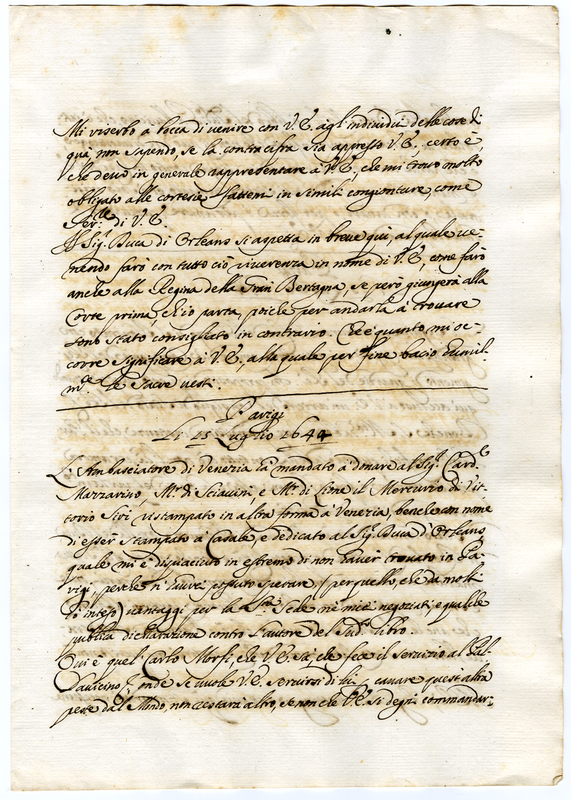 Mi riserbo a bocca di venire con V.E. agl'individui delle cose di
quà, non sapendo, se la contracifra sia appresso V.E., certo è,
che devo in generale rappresentare à V.E., che mi trovo molto
obligato alle cortesie fattemi in simili congionture, come
Ser.re di V.E.
Il Sig.r Duca di Orleans si aspetta in breve quì, al quale ve-
nendo farò con tutto ciò riverenza in nome di V.E., come farò
anche alla Regina della Gran Bertagna, se però giungerà alla
Corte prima, ch'io parta, poiche per andarla à trovare
sono stato consigliato in contrario. Che è quanto mi oc-
corre significare à V.E., alla quale per fine bacio humil-
m.te le sacre vesti.
Parigi
Li 15 Luglio 1644
L'Ambasciatore di Venezia hà mandato à donare al Sig.r Card.le
Mazzarino, Mr. di e Mr. di Lione il Mercurio di Vit-
torio Siri ristampato in altra forma à Venezia, benche con nome
di esser stampato à Casale, e dedicato al Sig.r Duca d'Orleans,
quale mi è dispiaciuto in estremo di non haver trovato in Pa-
rigi, perche n'havrei possuto sperare (per quello, che da molti
hò inteso) vantaggi per la S.ta Sede ne miei negoziati, e qualche
publica dichiarazione contro l'autore del sud.o libro.
Qui è quel Carlo Morfi, che V.E. sà, che fece il servizio al
onde se vuole V.E. servirsi di lui, cavare quest'altra
peste dal Mondo, non restarà altro, se non che V.E. si degni commandar: